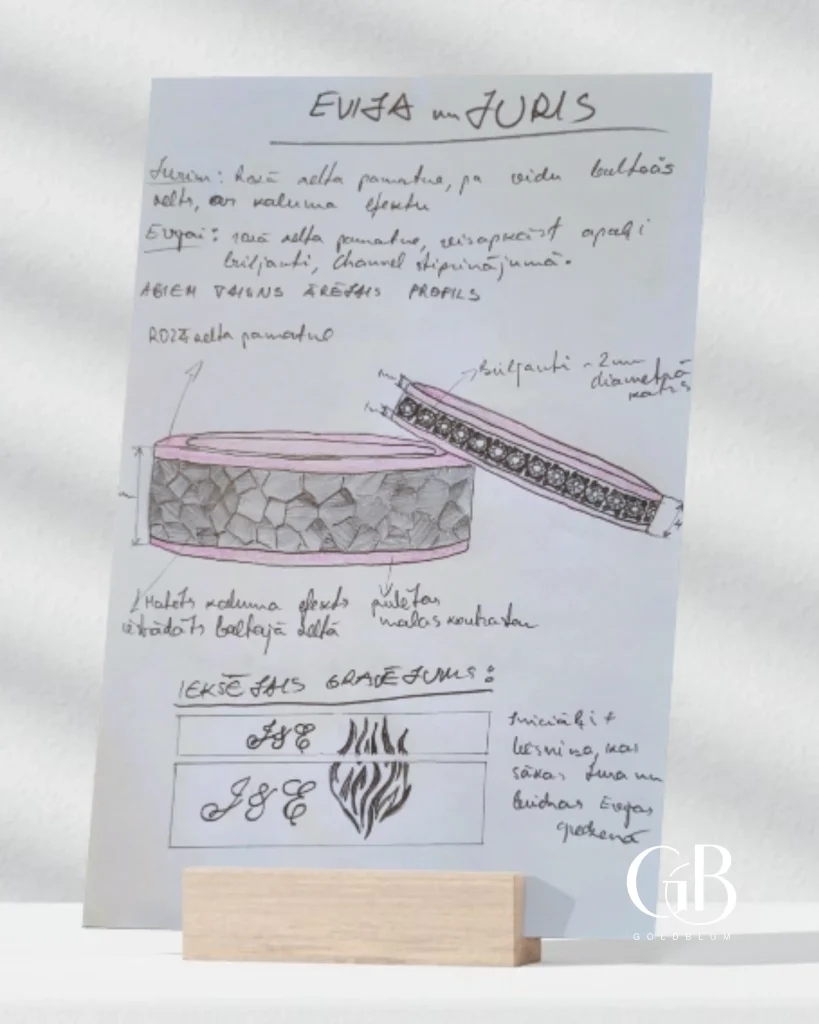 EVIJA un JURIS
Jurim: Rozā zelta pamatne, pa vidu baltais
zelts, ar kaluma efektu
Evijai: rozā zelta pamatne, visapkārt apaļi
briljanti, Channel stiprinājumā.
ABIEM TAISNS ĀRĒJAIS PROFILS
ROZĀ zelta pamatne
Briljanti ~2mm
diametrā
katrs
Matēts kaluma efekts
izstrādāts baltajā zeltā
pulētas
malas kontrastam
IEKŠĒJAIS GRAVĒJUMS:
J&E
J&E
Iniciāļi +
liesmiņa, kas
sākas Jura un
beidzas Evijas
gredzenā
GB
GOLDBLUM